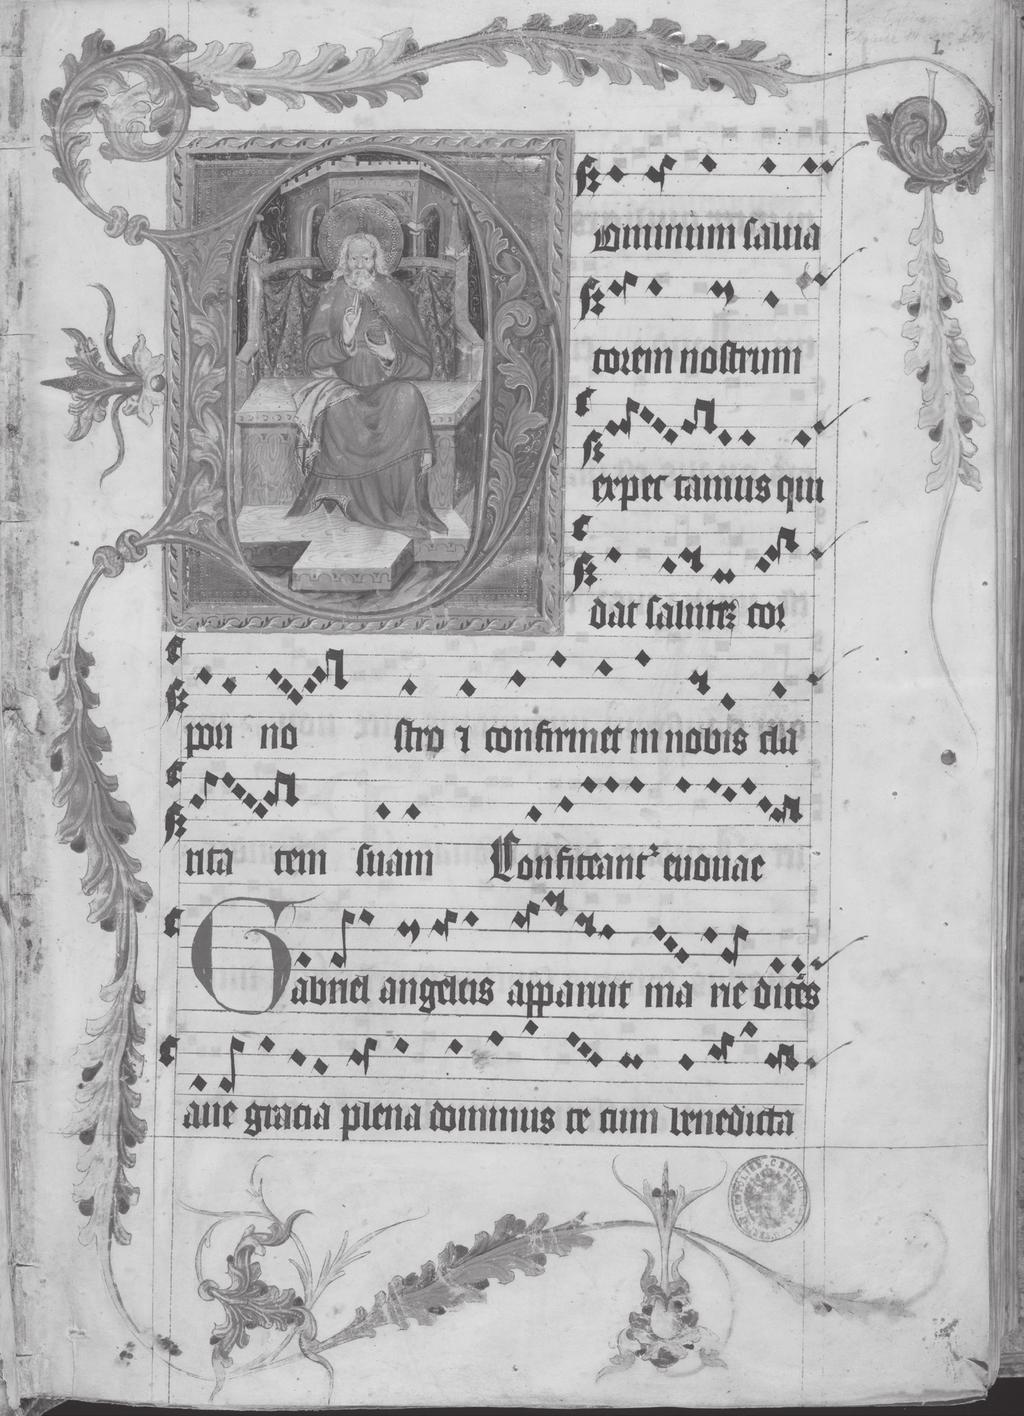 Dominum salua
torem nostrum
expec tamus qui
dat salutez cor
pori no stro ⁊ confirmet in nobis cla
rita tem suam Confiteantᷣ euouae
Gabriel angelus apparuit ma rie dicēs
aue gracia plena dominus te cum benedicta